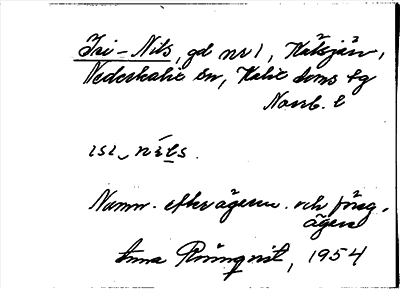 Isi-Nils, gd nr 1, Kätsjärv,
Nederkalix sn, Kalix doms lg
Norrb. l
ısı‿nı́ls.
Namn. efter ägaren. och föreg.
ägare
Anna Rönnqvist, 1954